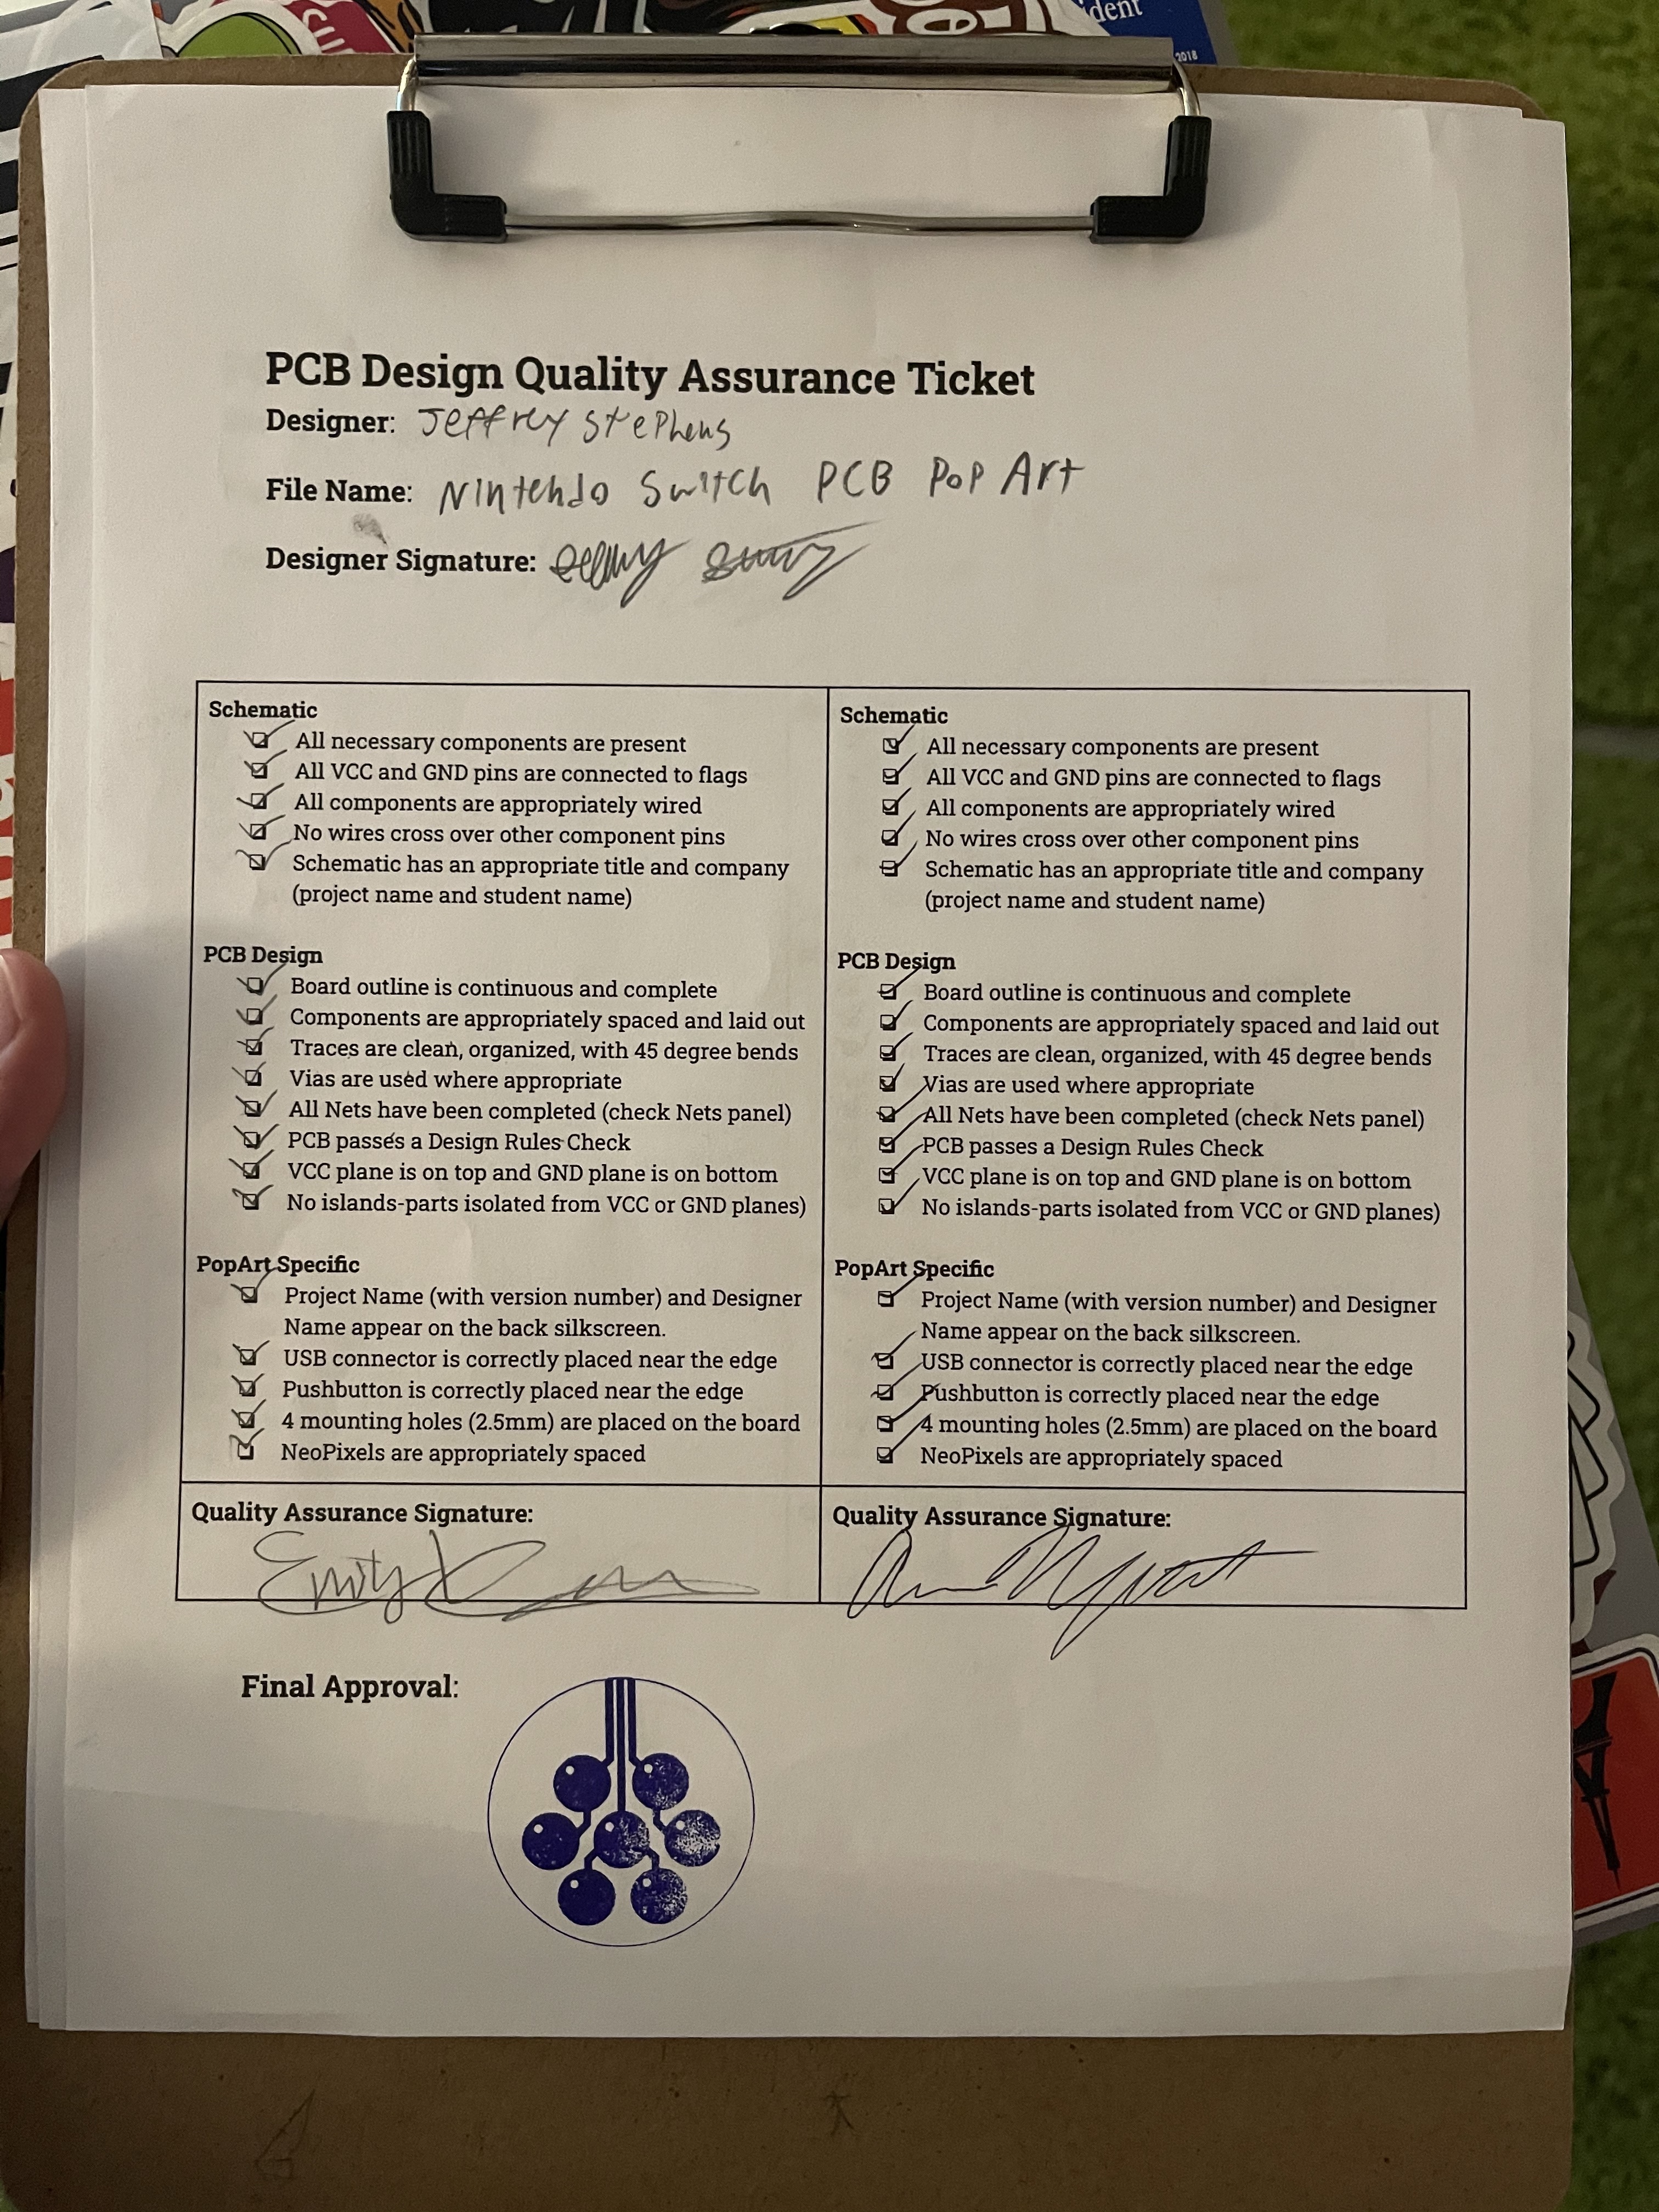 dent
2018
PCB Design Quality Assurance Ticket
Designer: Jeffrey Stephens
File Name: Nintendo Switch PCB Pop Art
Designer Signature:
Schematic
All necessary components are present
All VCC and GND pins are connected to flags
All components are appropriately wired
No wires cross over other component pins
Schematic has an appropriate title and company
(project name and student name)
PCB Design
Board outline is continuous and complete
Components are appropriately spaced and laid out
Traces are clean, organized, with 45 degree bends
Vias are used where appropriate
All Nets have been completed (check Nets panel)
PCB passes a Design Rules Check
VCC plane is on top and GND plane is on bottom
No islands-parts isolated from VCC or GND planes)
PopArt Specific
Project Name (with version number) and Designer
Name appear on the back silkscreen.
USB connector is correctly placed near the edge
Pushbutton is correctly placed near the edge
4 mounting holes (2.5mm) are placed on the board
NeoPixels are appropriately spaced
Quality Assurance Signature:
Emily
Schematic
All necessary components are present
All VCC and GND pins are connected to flags
All components are appropriately wired
No wires cross over other component pins
Schematic has an appropriate title and company
(project name and student name)
PCB Design
Board outline is continuous and complete
Components are appropriately spaced and laid out
Traces are clean, organized, with 45 degree bends
Vias are used where appropriate
All Nets have been completed (check Nets panel)
PCB passes a Design Rules Check
VCC plane is on top and GND plane is on bottom
No islands-parts isolated from VCC or GND planes)
PopArt Specific
Project Name (with version number) and Designer
Name appear on the back silkscreen.
USB connector is correctly placed near the edge
Pushbutton is correctly placed near the edge
4 mounting holes (2.5mm) are placed on the board
NeoPixels are appropriately spaced
Quality Assurance Signature:
Final Approval: